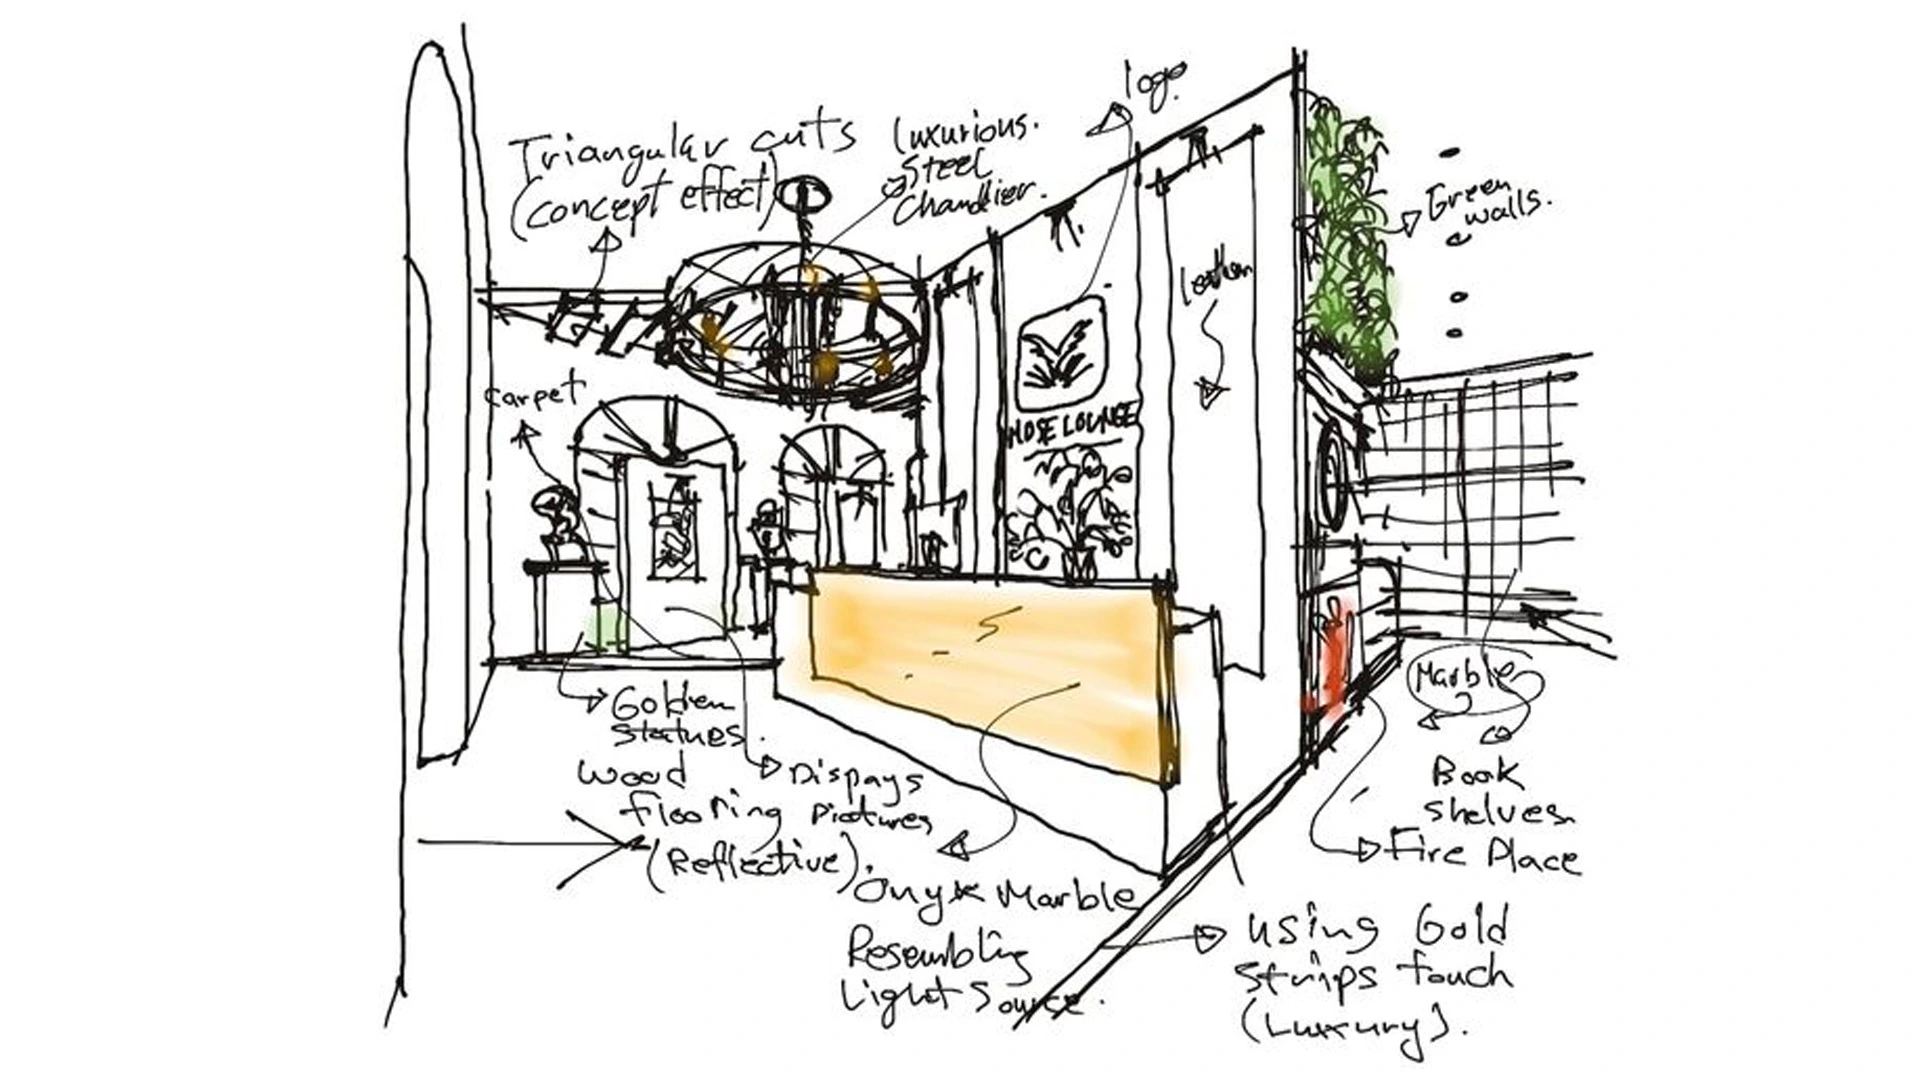 logo.
Triangular cuts
(concept effect)
Luxurious.
Steel
Chandlier.
Green
walls.
Leather
carpet
MOSE LOUNGE
Golden
statues.
Wood
flooring
(Reflective).
Dispays
Pictures
Onyx Marble
Resembling
Light Source.
Marble
Book
shelves.
Fire Place
Using Gold
Strips Touch
(Luxury).